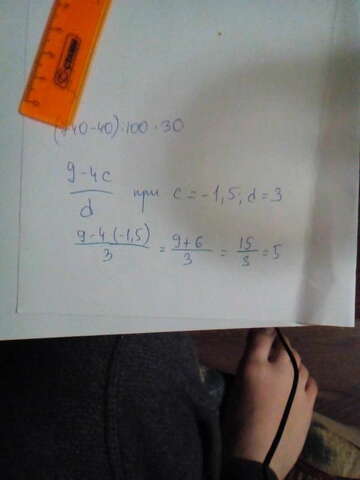 40-40)·100·30
9-4c
d
при c=-1,5; d=3
9-4(-1,5)
3
= 9+6
3
= 15
3
=5